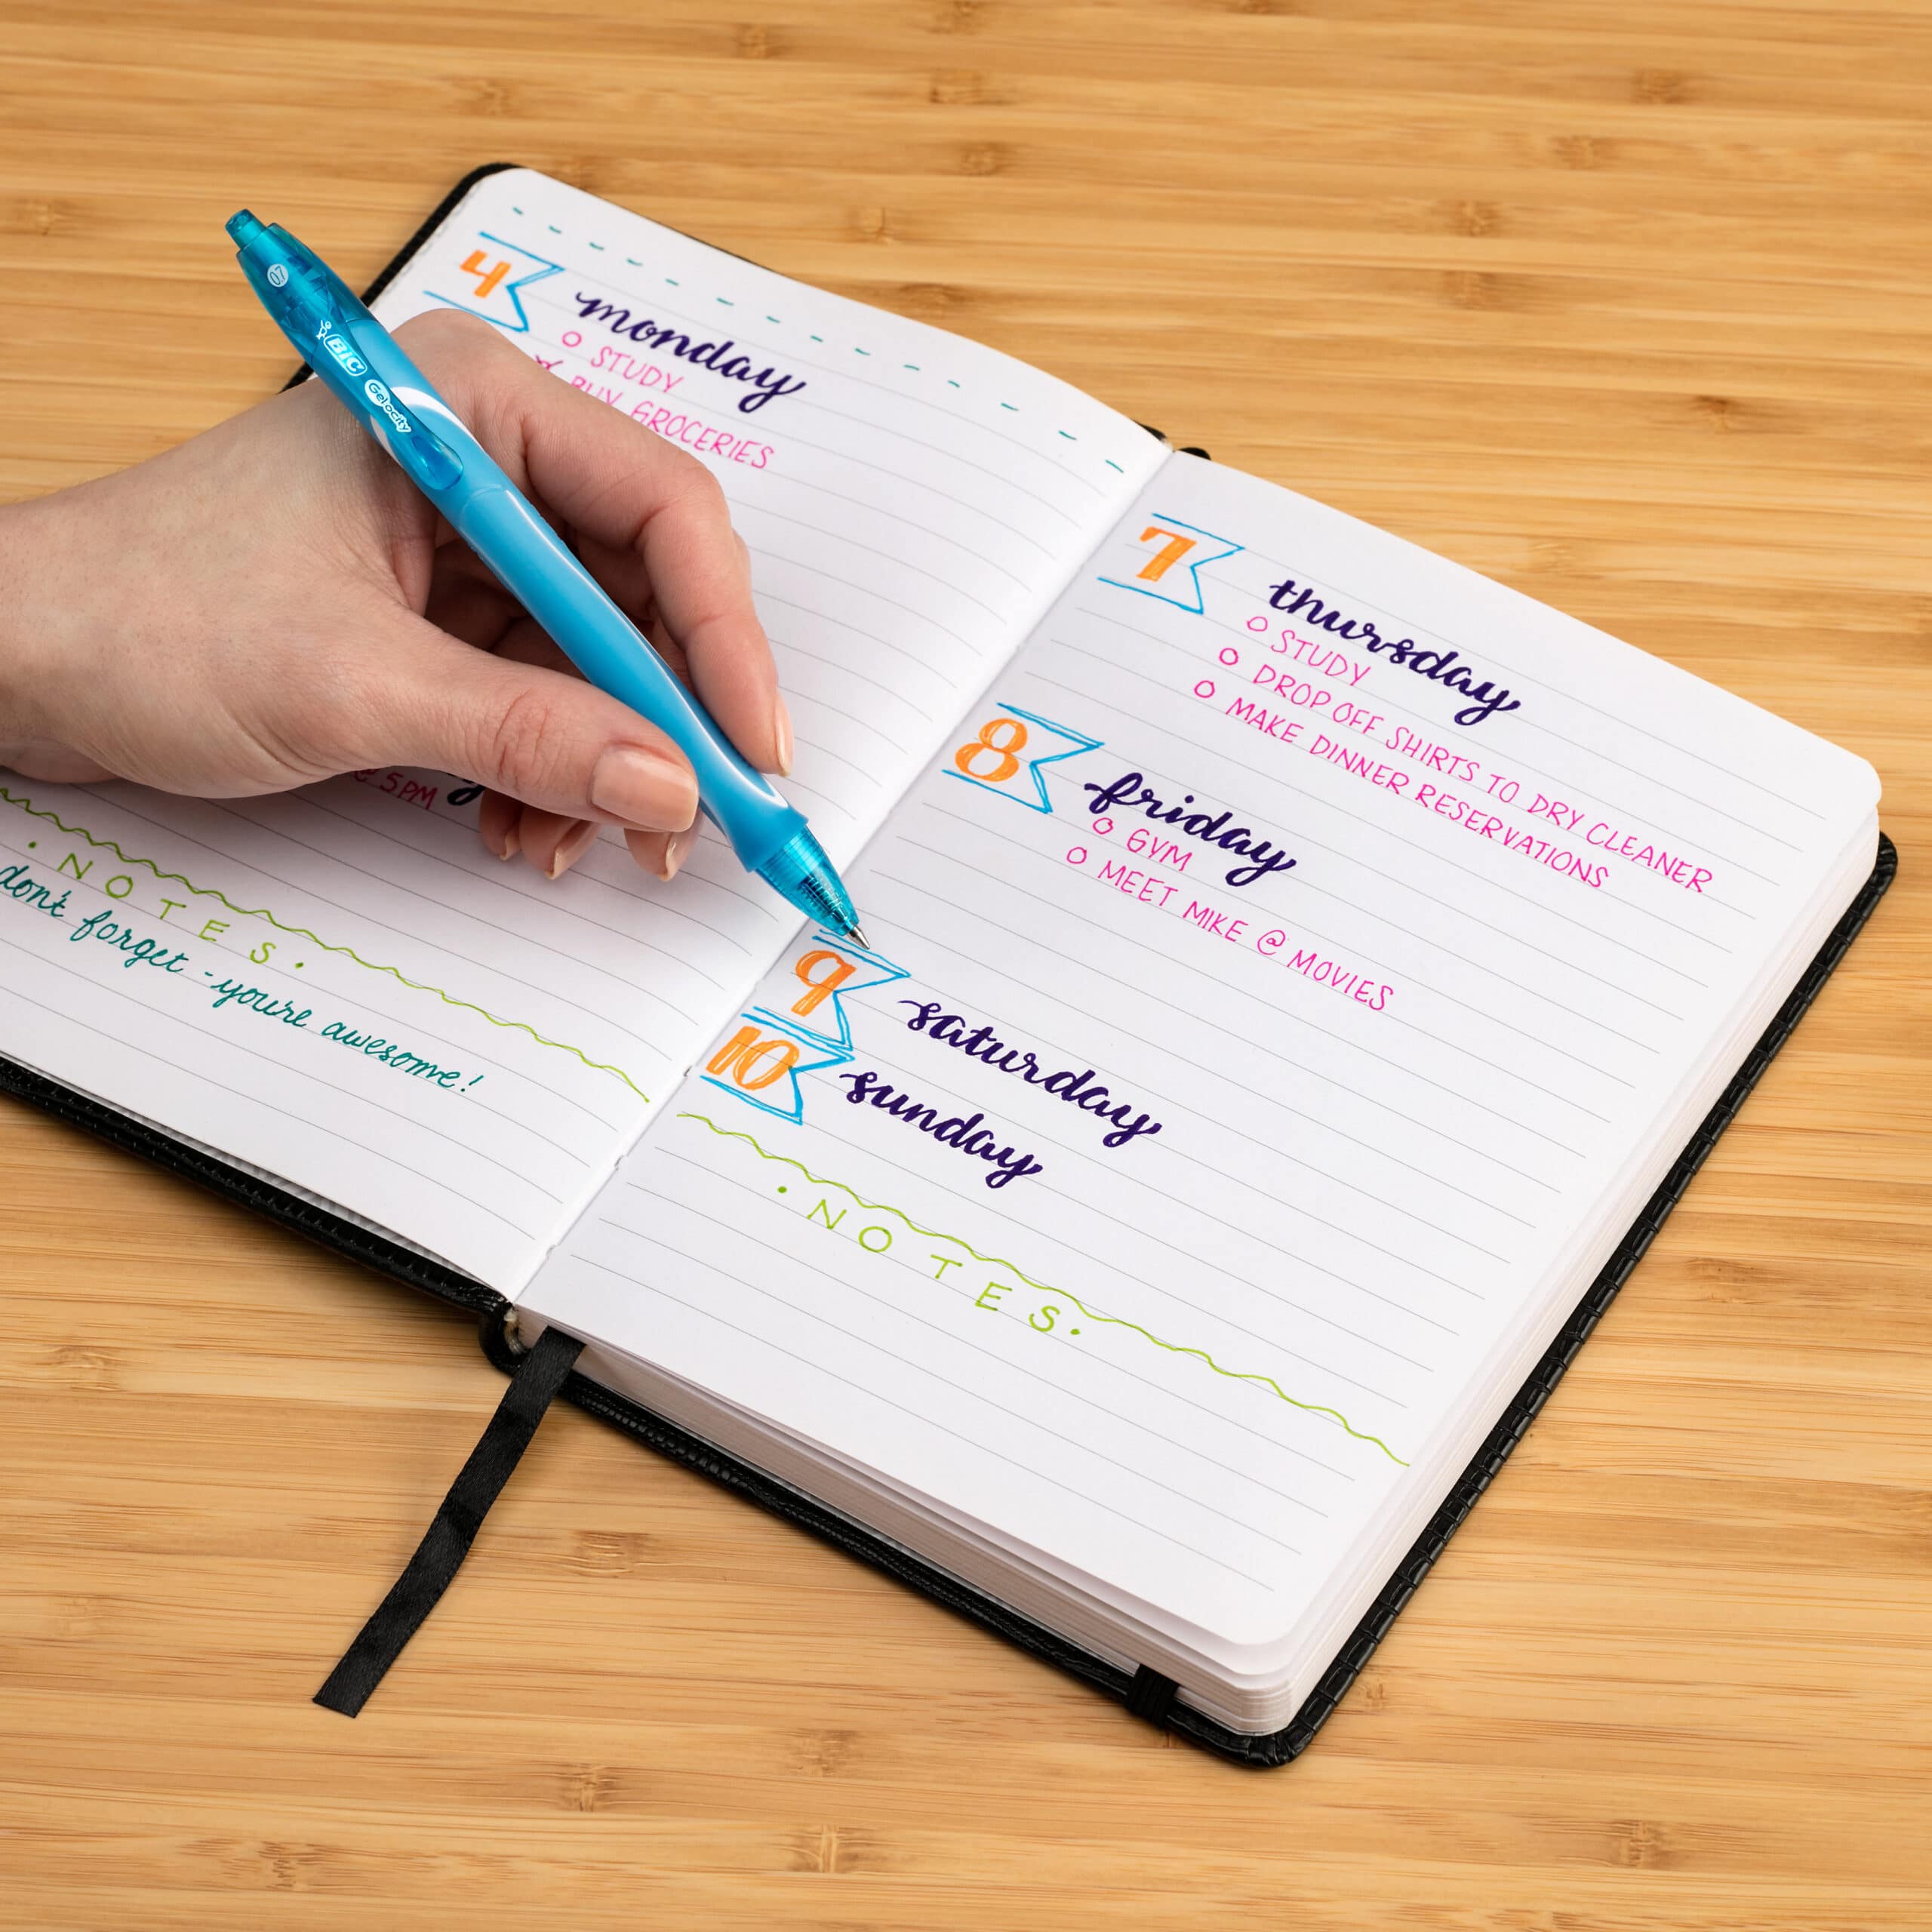 4 monday
STUDY
BUY GROCERIES
@ 5PM
• NOTES •
don't forget - you're awesome!
7 thursday
STUDY
DROP OFF SHIRTS TO DRY CLEANER
MAKE DINNER RESERVATIONS
8 friday
GYM
MEET MIKE @ MOVIES
9 saturday
10 sunday
• NOTES •
0.7
BIC
Gelocity